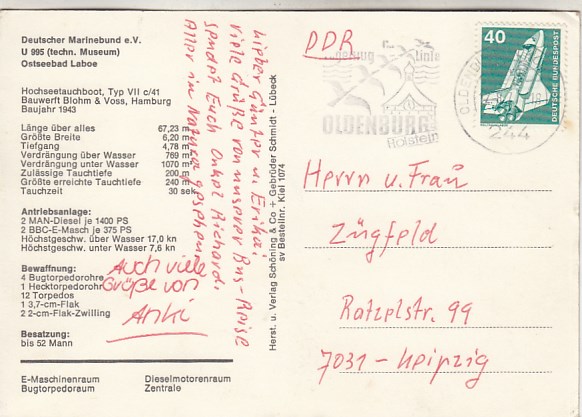 Deutscher Marinebund e.V.
U 995 (techn. Museum)
Ostseebad Laboe
Hochseetauchboot, Typ VII c/41
Bauwerft Blohm & Voss, Hamburg
Baujahr 1943
Länge über alles 67,23 m
Größte Breite 6,20 m
Tiefgang 4,78 m
Verdrängung über Wasser 769
Verdrängung unter Wasser 1070
Zulässige Tauchtiefe 200 m
Größte erreichte Tauchtiefe 240 m
Tauchzeit 30 sek
Antriebsanlage:
2 MAN-Diesel je 1400 PS
2 BBC-E-Masch je 375 PS
Höchstgeschw. über Wasser 17,0 kn
Höchstgeschw. unter Wasser 7,6 kn
Bewaffnung:
4 Bugtorpedorohre
1 Hecktorpedorohr
12 Torpedos
1 3,7-cm-Flak
2 2-cm-Flak-Zwilling
Besatzung:
bis 52 Mann
E-Maschinenraum Dieselmotorenraum
Bugtorpedoraum Zentrale
Lieber Günter u. Erika,
viele Grüße von unserer Bus-Reise
sendet Euch Onkel Richard.
Alles in Natura gesehen
Auch viele
Grüße von
Anki
Herst. u. Verlag Schöning & Co + Gebrüder Schmidt - Lübeck
sv Bestellnr. Kiel 1074
DDR
Vogelflug Linie
OLDENBURG
Holstein
OLDENBU
244
40
DEUTSCHE BUNDESPOST
Herrn u. Frau
Zügfeld
Ratzelstr. 99
7031 - Leipzig